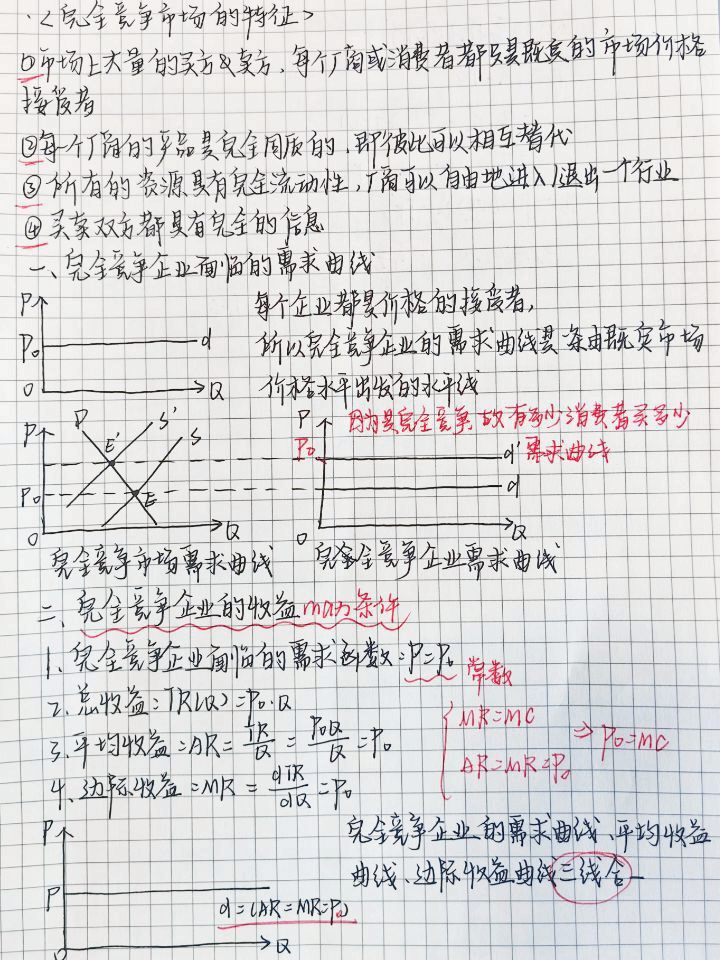 <完全竞争市场的特征>
①市场上大量的买方&卖方，每个厂商或消费者都只是既定的市场价格
接受者
②每一个厂商的产品是完全同质的，即彼此可以相互替代
③所有的资源具有完全流动性，厂商可以自由地进入/退出一个行业
④买卖双方都具有完全的信息
一、完全竞争企业面临的需求曲线
P
P₀
d
O
Q
每个企业都是价格的接受者，
所以完全竞争企业的需求曲线是一条由既定市场
价格水平出发的水平线
P
D
S'
S
E'
E
P₀
O
Q
完全竞争市场需求曲线
P
因为是完全竞争，故有多少消费者买多少
P₀
d'
需求曲线
d
O
Q
完全竞争企业需求曲线
二、完全竞争企业的收益max条件
1、完全竞争企业面临的需求函数：P=P₀
常数
2、总收益：TR(Q)=P₀·Q
3、平均收益：AR=TR/Q=P₀Q/Q=P₀
4、边际收益：MR=dTR/dQ=P₀
MR=MC
AR=MR=P₀
⇒P₀=MC
P
P
d=(AR=MR=P₀)
O
Q
完全竞争企业的需求曲线、平均收益
曲线、边际收益曲线三线合一